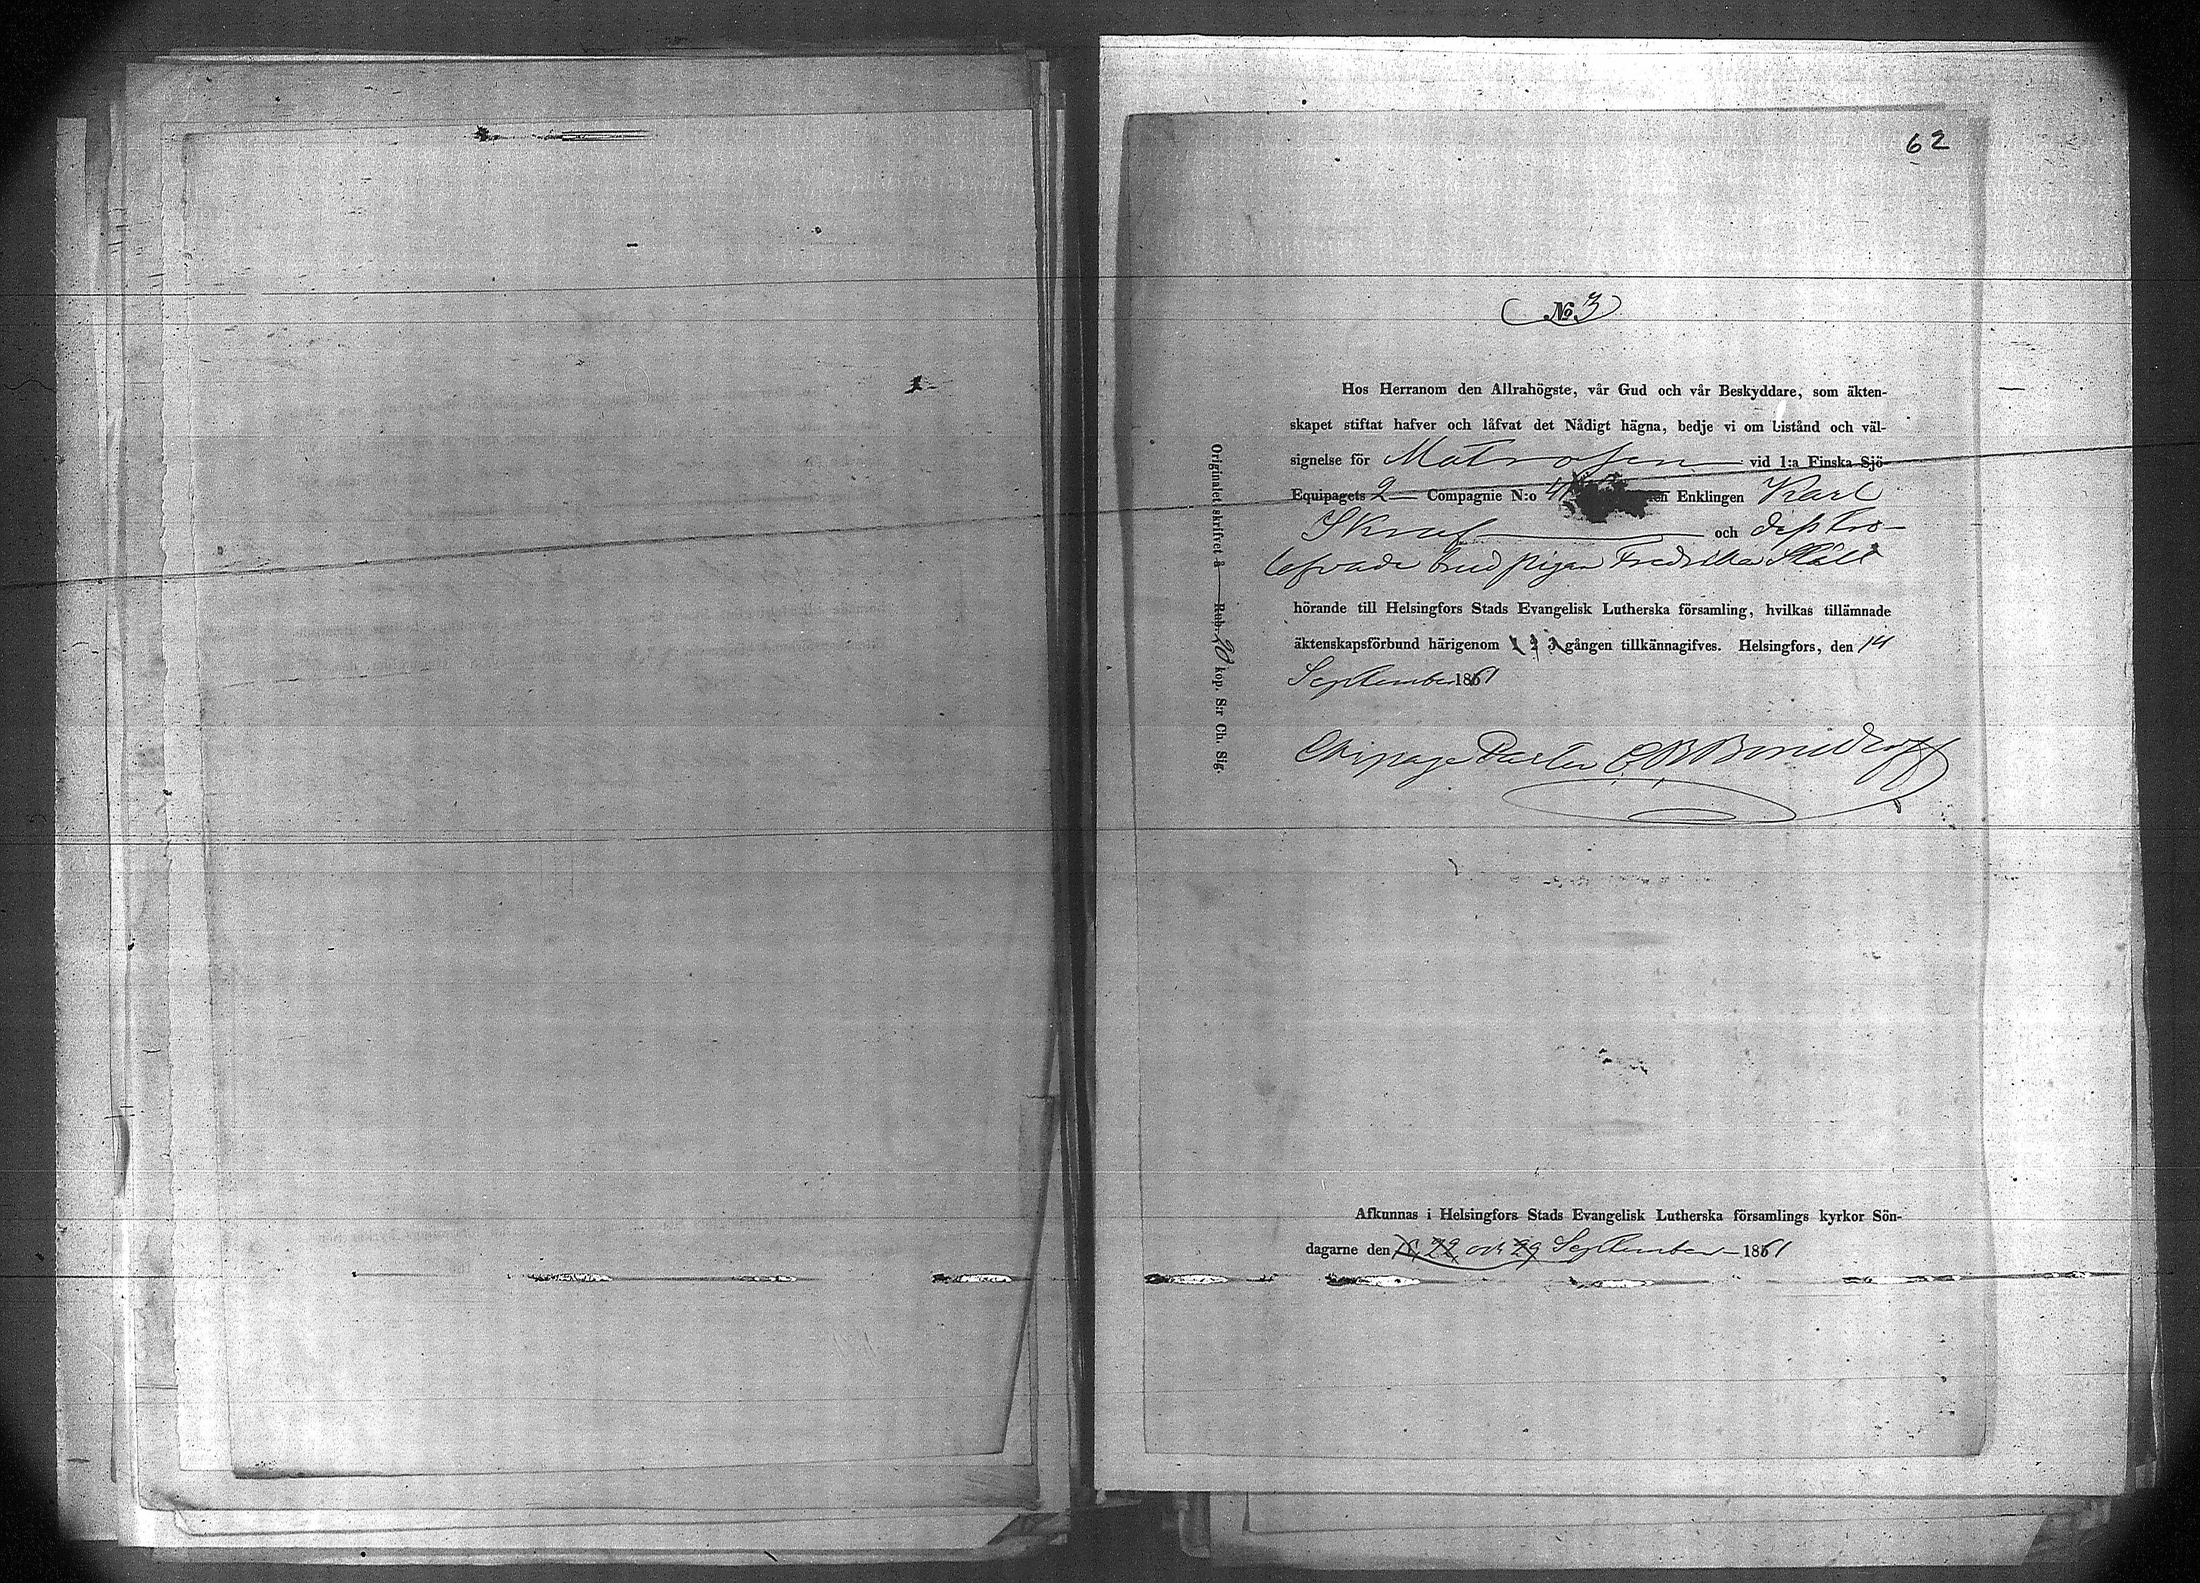 62
No 3
Hos Herranom den Allrahögste, vår Gud och vår Beskyddare, som äkten-
skapet stiftat hafver och låfvat det Nådigt hägna, bedje vi om bistånd och väl-
signelse för Matrosen vid 1:a Finska Sjö-
Equipagets 2 Compagnie N:o Enklingen Karl
Skruf och dess tro-
lofvade brud pigan Fredrika
hörande till Helsingfors Stads Evangelisk Lutherska församling, hvilkas tillämnade
äktenskapsförbund härigenom 1 2 3 gången tillkännagifves. Helsingfors, den 14
September 1861
Ekipage Pastor
Originalet skrifvet å Rub. 20 kop. S:r Ch. Sig.
Afkunnas i Helsingfors Stads Evangelisk Lutherska församlings kyrkor Sön-
dagarne den 15, 22 och 29 September 1861